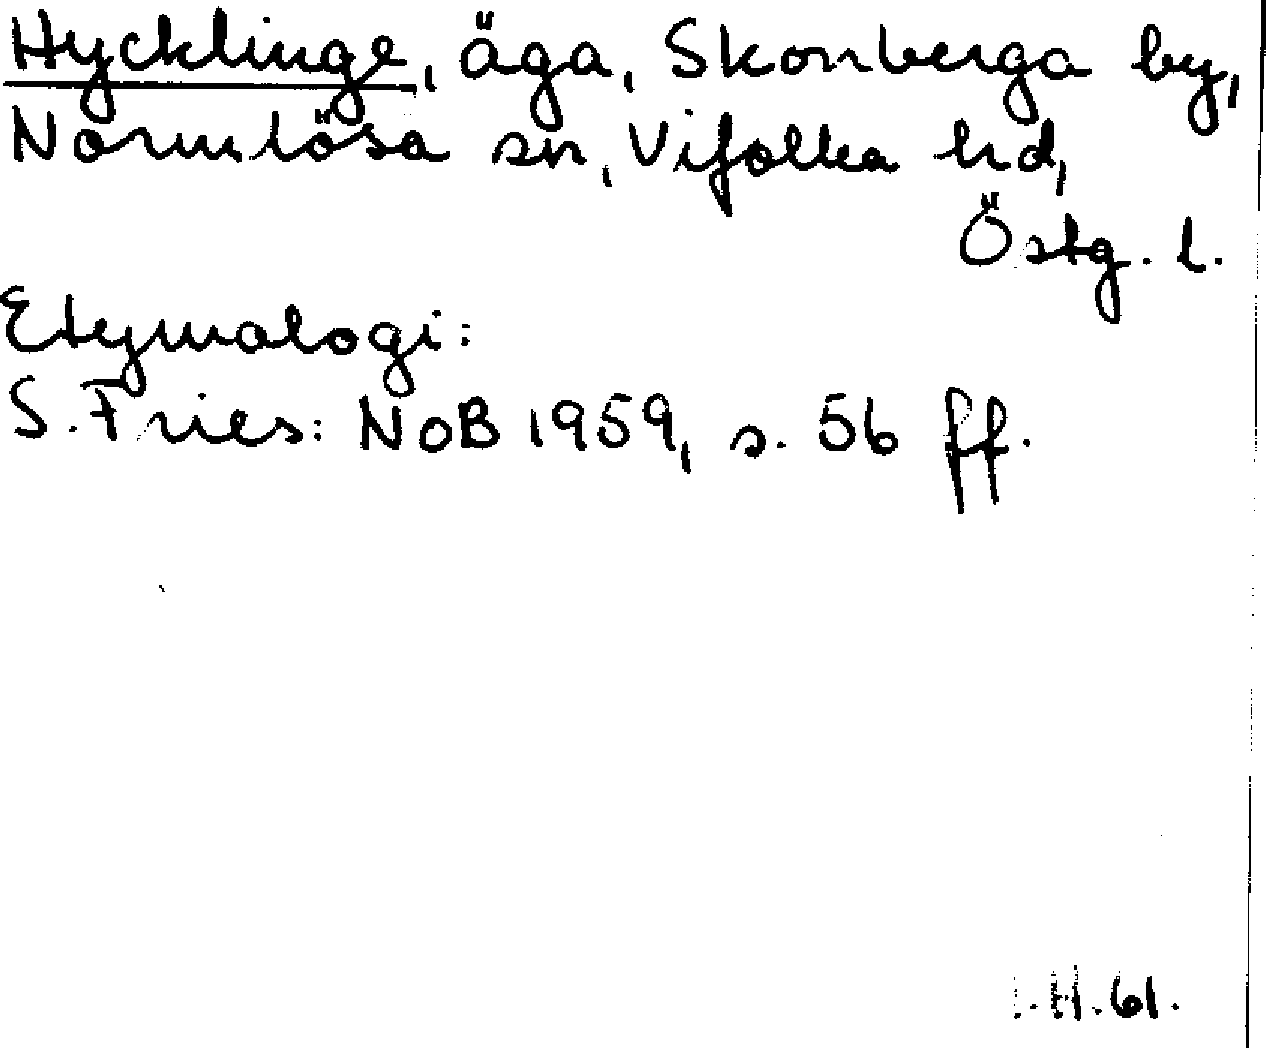 Hycklinge, äga, Skonberga by,
Normlösa sn, Vifolka hd,
Östg. l.
Etymologi:
S. Fries: NoB 1959, s. 56 ff.
H. 61.